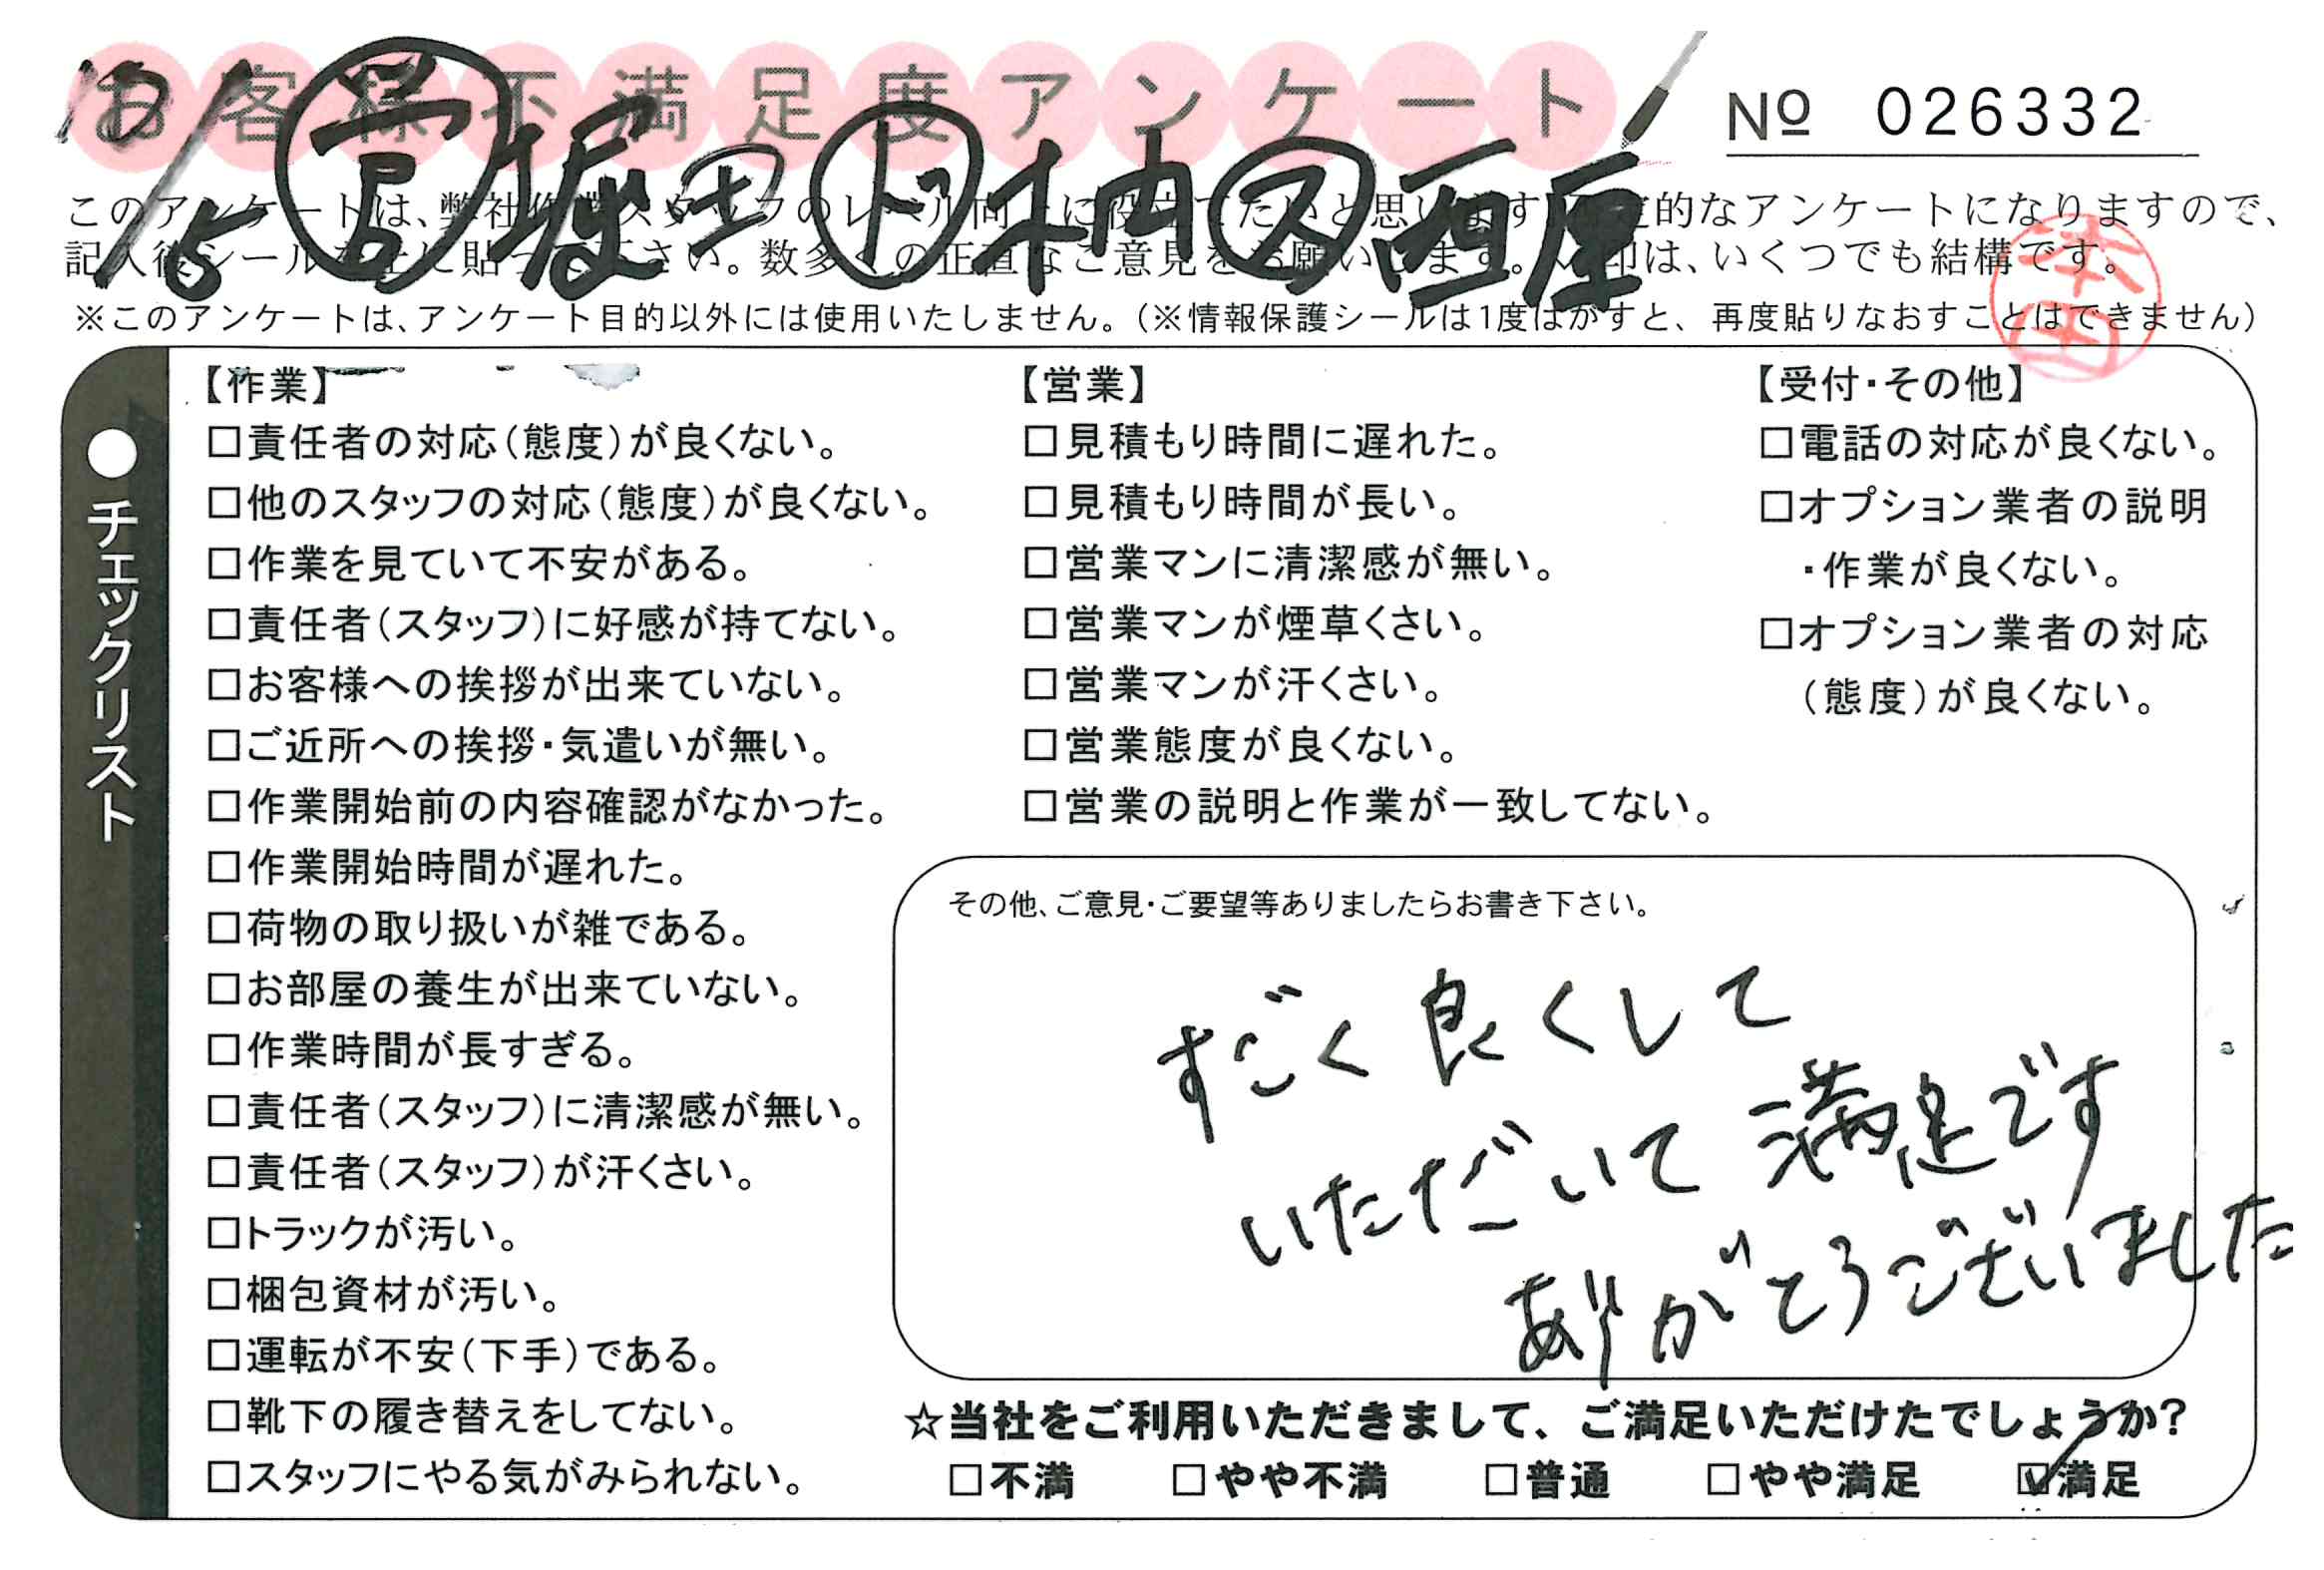 お客様不満足度アンケート
No 026332
10/15 営 堀古 ド 柚 ス 西屋
このアンケートは、弊社作業スタッフのレベル向上に役立てたいと思います。定度的なアンケートになりますので、
記入後シールを上に貼って下さい。数多くの正直なご意見をお願いします。レ印は、いくつでも結構です。
本田
※このアンケートは、アンケート目的以外には使用いたしません。(※情報保護シールは1度はがすと、再度貼りなおすことはできません)
●チェックリスト
【作業】
□責任者の対応(態度)が良くない。
□他のスタッフの対応(態度)が良くない。
□作業を見ていて不安がある。
□責任者(スタッフ)に好感が持てない。
□お客様への挨拶が出来ていない。
□ご近所への挨拶・気遣いが無い。
□作業開始前の内容確認がなかった。
□作業開始時間が遅れた。
□荷物の取り扱いが雑である。
□お部屋の養生が出来ていない。
□作業時間が長すぎる。
□責任者(スタッフ)に清潔感が無い。
□責任者(スタッフ)が汗くさい。
□トラックが汚い。
□梱包資材が汚い。
□運転が不安(下手)である。
□靴下の履き替えをしてない。
□スタッフにやる気がみられない。
【営業】
□見積もり時間に遅れた。
□見積もり時間が長い。
□営業マンに清潔感が無い。
□営業マンが煙草くさい。
□営業マンが汗くさい。
□営業態度が良くない。
□営業の説明と作業が一致してない。
【受付・その他】
□電話の対応が良くない。
□オプション業者の説明
・作業が良くない。
□オプション業者の対応
(態度)が良くない。
その他、ご意見・ご要望等ありましたらお書き下さい。
すごく良くして
いただいて満足です
ありがとうございました
☆当社をご利用いただきまして、ご満足いただけたでしょうか?
□不満 □やや不満 □普通 □やや満足 ☑満足